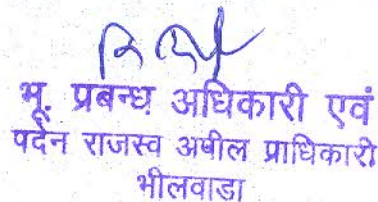 भू. प्रबन्ध अधिकारी एवं
पदेन राजस्व अपील प्राधिकारी
भीलवाडा